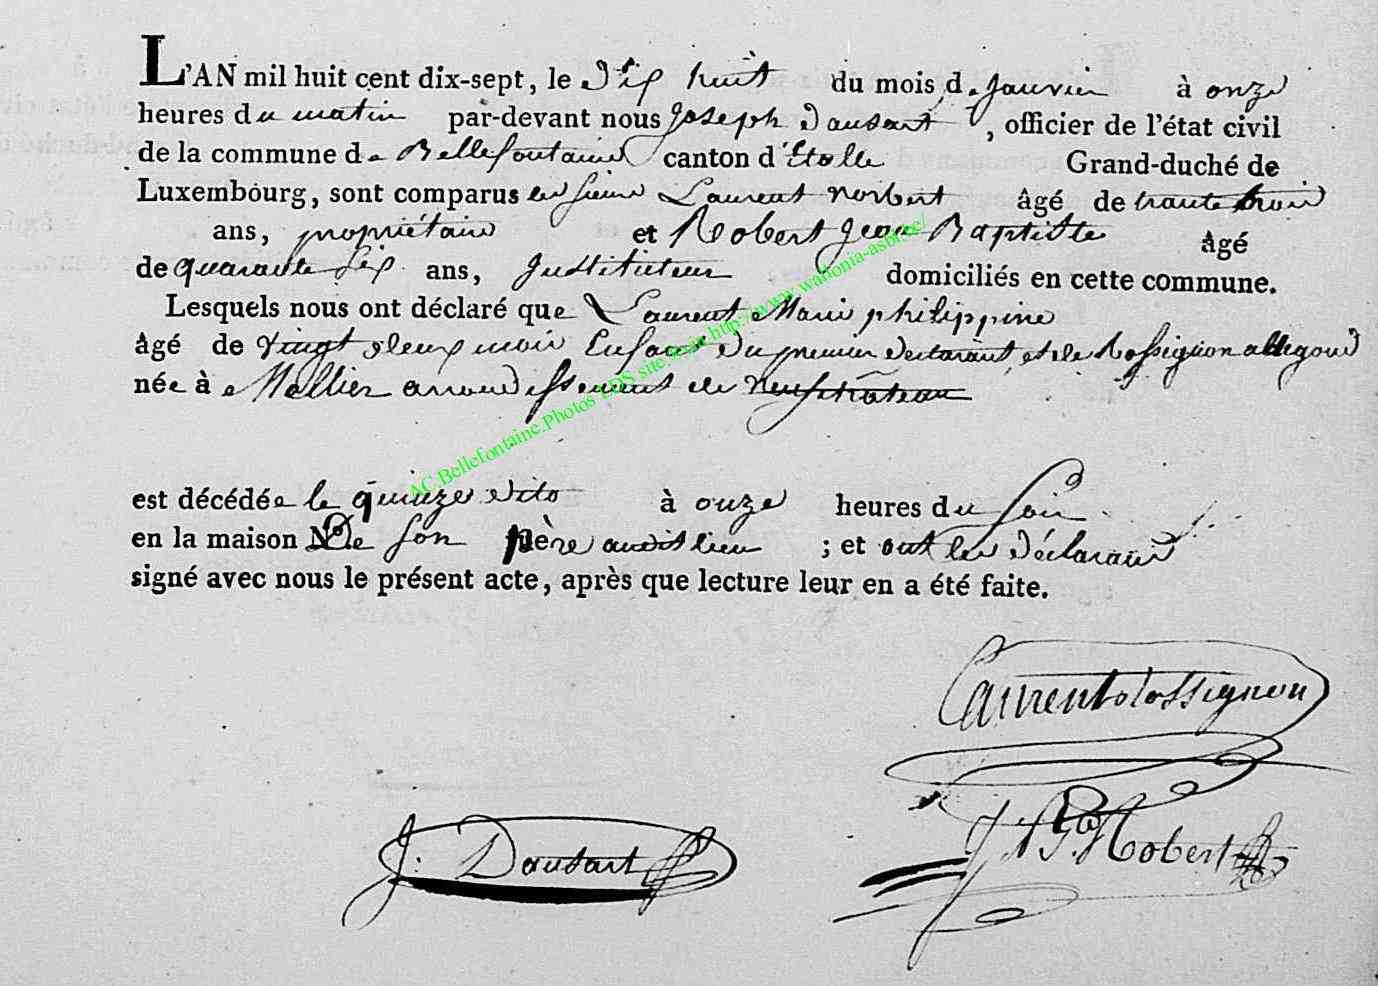 L'AN mil huit cent dix-sept, le Dix huit du mois de Janvier à onze
heures du matin par-devant nous Joseph Dausart, officier de l'état civil
de la commune de Bellefontaine canton d'Etalle Grand-duché de
Luxembourg, sont comparus les sieurs Laurent Norbert âgé de trante trois
ans, propriétaire et Robert Jean Baptiste âgé
de quarante six ans, Instituteur domiciliés en cette commune.
Lesquels nous ont déclaré que Laurent Marie philippine
âgé de Vingt deux mois Enfant du premier declarant et de Rossignon
née à Mellier arrondissement de neufchateau
est décédée le quinze dito à onze heures du soir
en la maison De son père audit lieu ; et ont les déclarans
signé avec nous le présent acte, après que lecture leur en a été faite.
Laurent Rossignon
J. Dausart
Robert
AC.Bellefontaine.Photos LDS site web http://www.wallonia-asbl.be/